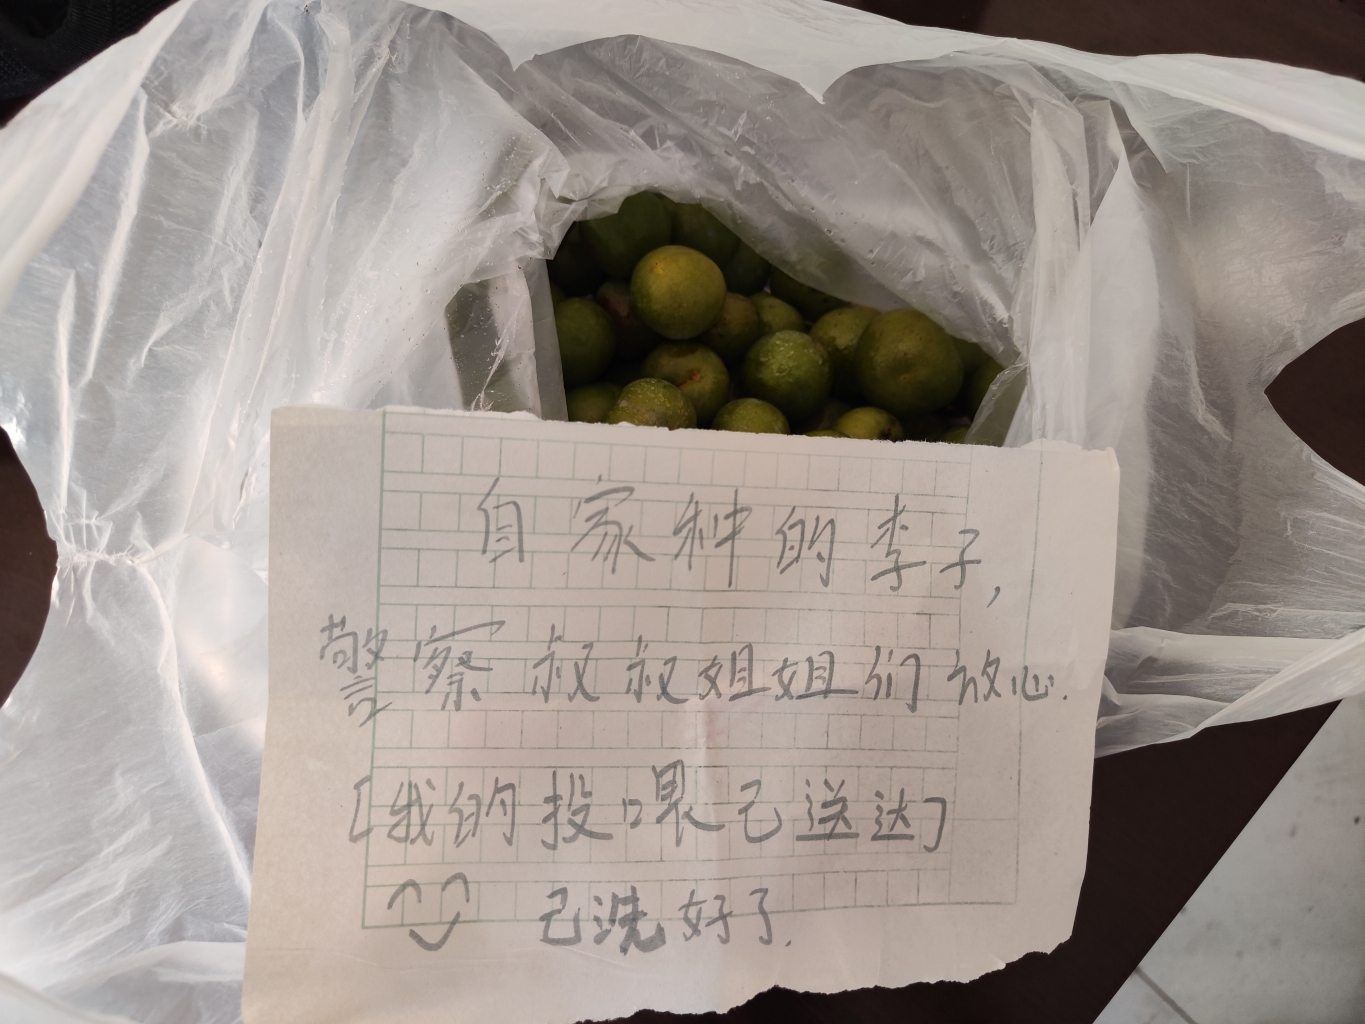 自家种的李子,
警察叔叔姐姐们放心.
[我的投喂已送达]
已洗好了.